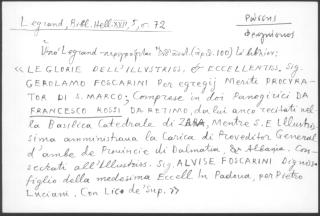 Legrand, Bibl. Hell. XVII, 5, σ. 72
Ρώσσης
Φραγκίσκος
Ὑπὸ Legrand περιγράφεται (ἀρ. 100) τὸ βιβλίον:
« LE GLORIE DELL'ILLUSTRISS, & ECCELLENTISS, SIG.
GEROLAMO FOSCARINI Per egregij Meriti PROCURA-
TOR DI S. MARCO; Comprese in doi Panegirici DA
FRANCESCO ROSSI DA RETIMO, da lui anco recitati nel
la Basilica Catredale di ZARA, Mentre S. E. Illustris
sima amministrava la Carica di Proveditor General
d'ambe le Provincie di Dalmatia, & Albania. Con-
secrati all'Illustriss. Sig. ALVISE FOSCARINI Digniss.
figlio della medesima Eccell. In Padova, per Pietro
Luciani. Con Lic. de' Sup. »